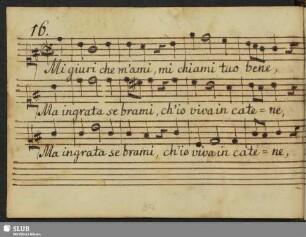 16.
Mi giuri che m'ami, mi chiami tuo bene,
Ma ingrata se brami, ch'io viva in cate=ne,
Ma ingrata se brami, ch'io viva in cate=ne,
SLUB